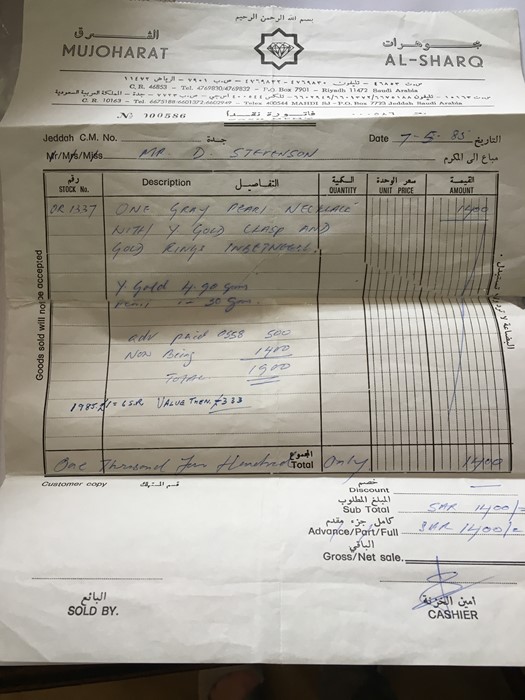 بسم الله الرحمن الرحيم
مجوهرات الشرق
MUJOHARAT AL-SHARQ
C. R. 46853 - Tel. 4769830/4769832 - P.O Box 7901 - Riyadh 11472 Saudi Arabia
C. R. 10163 - Tel. 6675188-6601372-6602949 - Telex 400544 MAHDI SJ - P.O. Box 7723 Jeddah Saudi Arabia
فاتورة نقدا
No 000586
Jeddah C.M. No. جدة
Date 7-5-85 التاريخ
Mr/Mrs/Miss MR D. STEVENSON مباع الى المكرم
رقم التفاصيل الكمية سعر الوحدة القيمة
STOCK No. Description QUANTITY UNIT PRICE AMOUNT
1337 ONE GRAY PEARL NECKLACE 1400
WITH Y GOLD CLASP AND
GOLD RINGS INBETWEEN.
Y Gold 4.90 gm
30 gm.
adv paid 0358 500
Now Being 1400
TOTAL 1900
VALUE THEN £333
One Thousand Four Hundred المجموع Total Only 1400
Goods sold will not be accepted
Customer copy
خصم
Discount
المبلغ المطلوب
Sub Total SAR 1400/=
كامل جزء مقدم
Advance/Part/Full SAR 1400/=
الباقي
Gross/Net sale.
البائع
SOLD BY.
أمين الخزينة
CASHIER